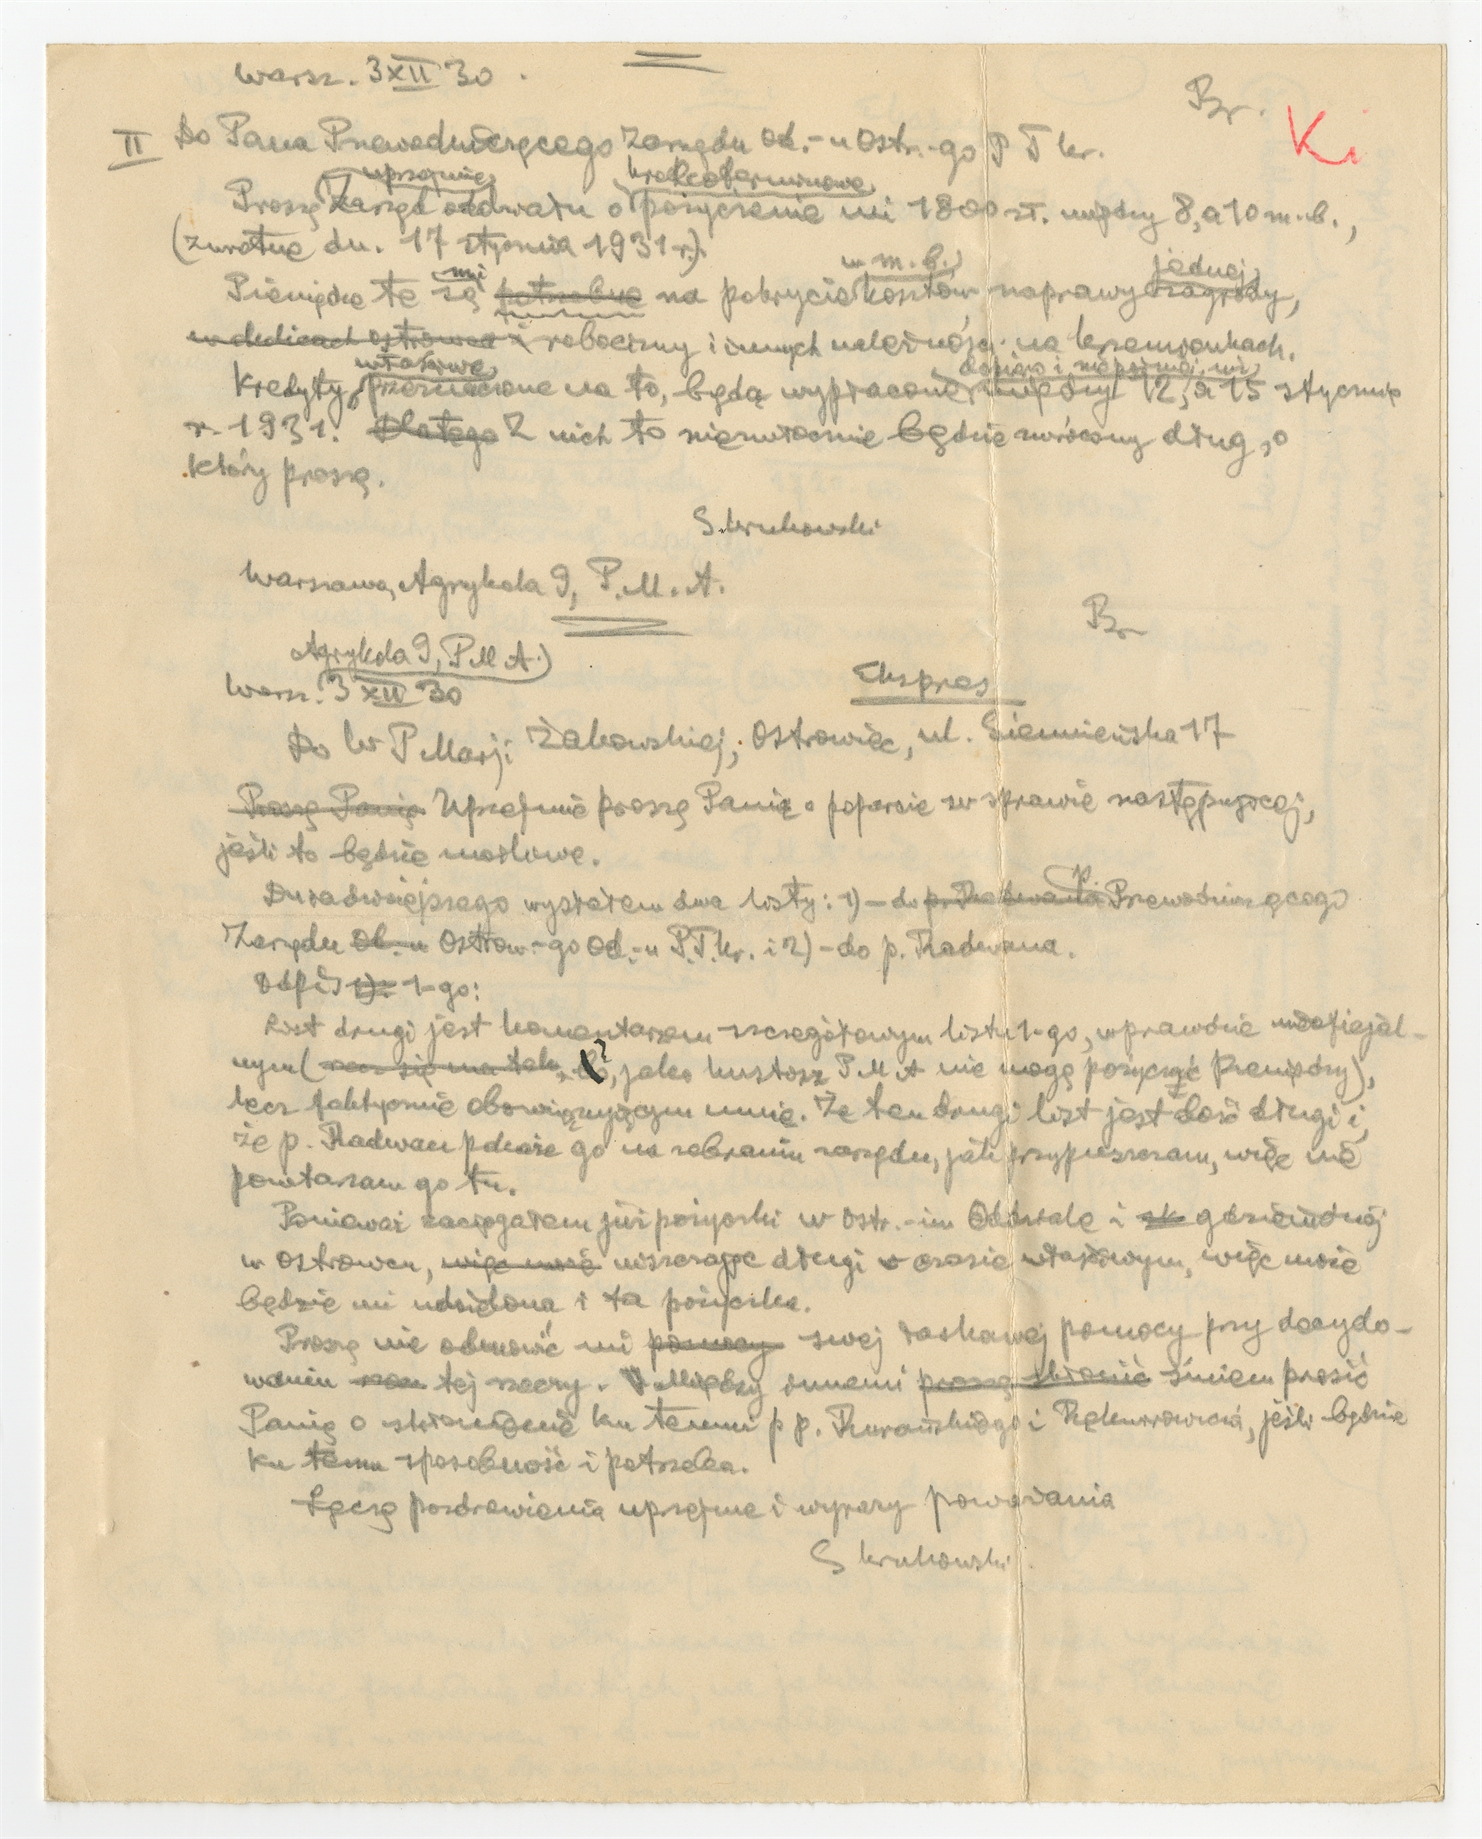 Warsz. 3 XII 30.
Br.
Ki
II Do Pana Przewodniczącego Zarządu Od.-u Ostr.-go P T Kr.
uprzejmie krótkoterminowe
Proszę Zarząd oddziału o pożyczenie mi 1800 zł. między 8, a 10 m. b.,
(zwrotne dn. 17 stycznia 1931 r.).
mi w m. b. jednej
Pieniądze te są potrzebne na pokrycie kosztów naprawy zagrody,
i robocizny i innych należności na krzemionkach.
właściwe dopiero i najpóźniej
Kredyty, przeznaczone na to, będą wypłacone między 12, a 15 stycznia
r. 1931. Dlatego Z nich to niezwłocznie będzie zwrócony dług, o
który proszę.
S. Krukowski
Warszawa, Agrykola 9, P. M. A.
Br
Agrykola 9, P M A.)
Warsz. 3 XII 30
Ekspres
Do W P Marji Żakowskiej, Ostrowiec, ul. Siennieńska 17
Proszę Panią Uprzejmie proszę Panią o poparcie w sprawie następującej,
jeśli to będzie możliwe.
Dnia dzisiejszego wysłałem dwa listy: 1) – do p. Radwana P. Przewodniczącego
Zarządu Od.-u Ostrow.-go Od.-u P.T.Kr. i 2) – do p. Radwana.
Odpis 1). 1-go:
List drugi jest komentarzem szczegółowym listu 1-go, wprawdzie nieoficjal-
nym (, jako kustosz P M A nie mogę pożyczać pieniędzy),
lecz faktycznie obowiązującym mnie. Że ten drugi list jest dość długi i,
że p. Radwan pokaże go na zebraniu zarządu, jak przypuszczam, więc nie
powtarzam go tu.
Ponieważ zaciągałem już pożyczki w Ostr.-im Oddziale i gdzieindziej
w Ostrowcu, więc może uiszczając długi w czasie właściwym, więc może
będzie mi udzielona i ta pożyczka.
Proszę nie odmówić mi pomocy swej łaskawej pomocy przy decydo-
waniu tej rzeczy. Między innemi proszę skłonić śmiem prosić
Panią o skłonienie ku temu p p. i, jeśli będzie
ku temu sposobność i potrzeba.
Łączę pozdrowienia uprzejme i wyrazy poważania
S Krukowski.